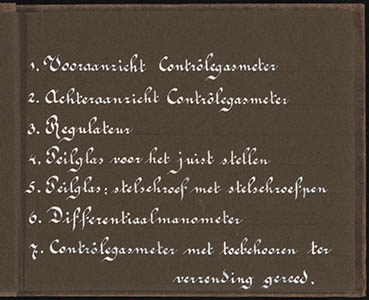 1. Vooraanzicht Contrôlegasmeter
2. Achteraanzicht Contrôlegasmeter
3. Regulateur
4. Peilglas voor het juist stellen
5. Peilglas; stelschroef met stelschroefpen
6. Differentiaalmanometer
7. Contrôlegasmeter met toebehooren ter
verzending gereed.